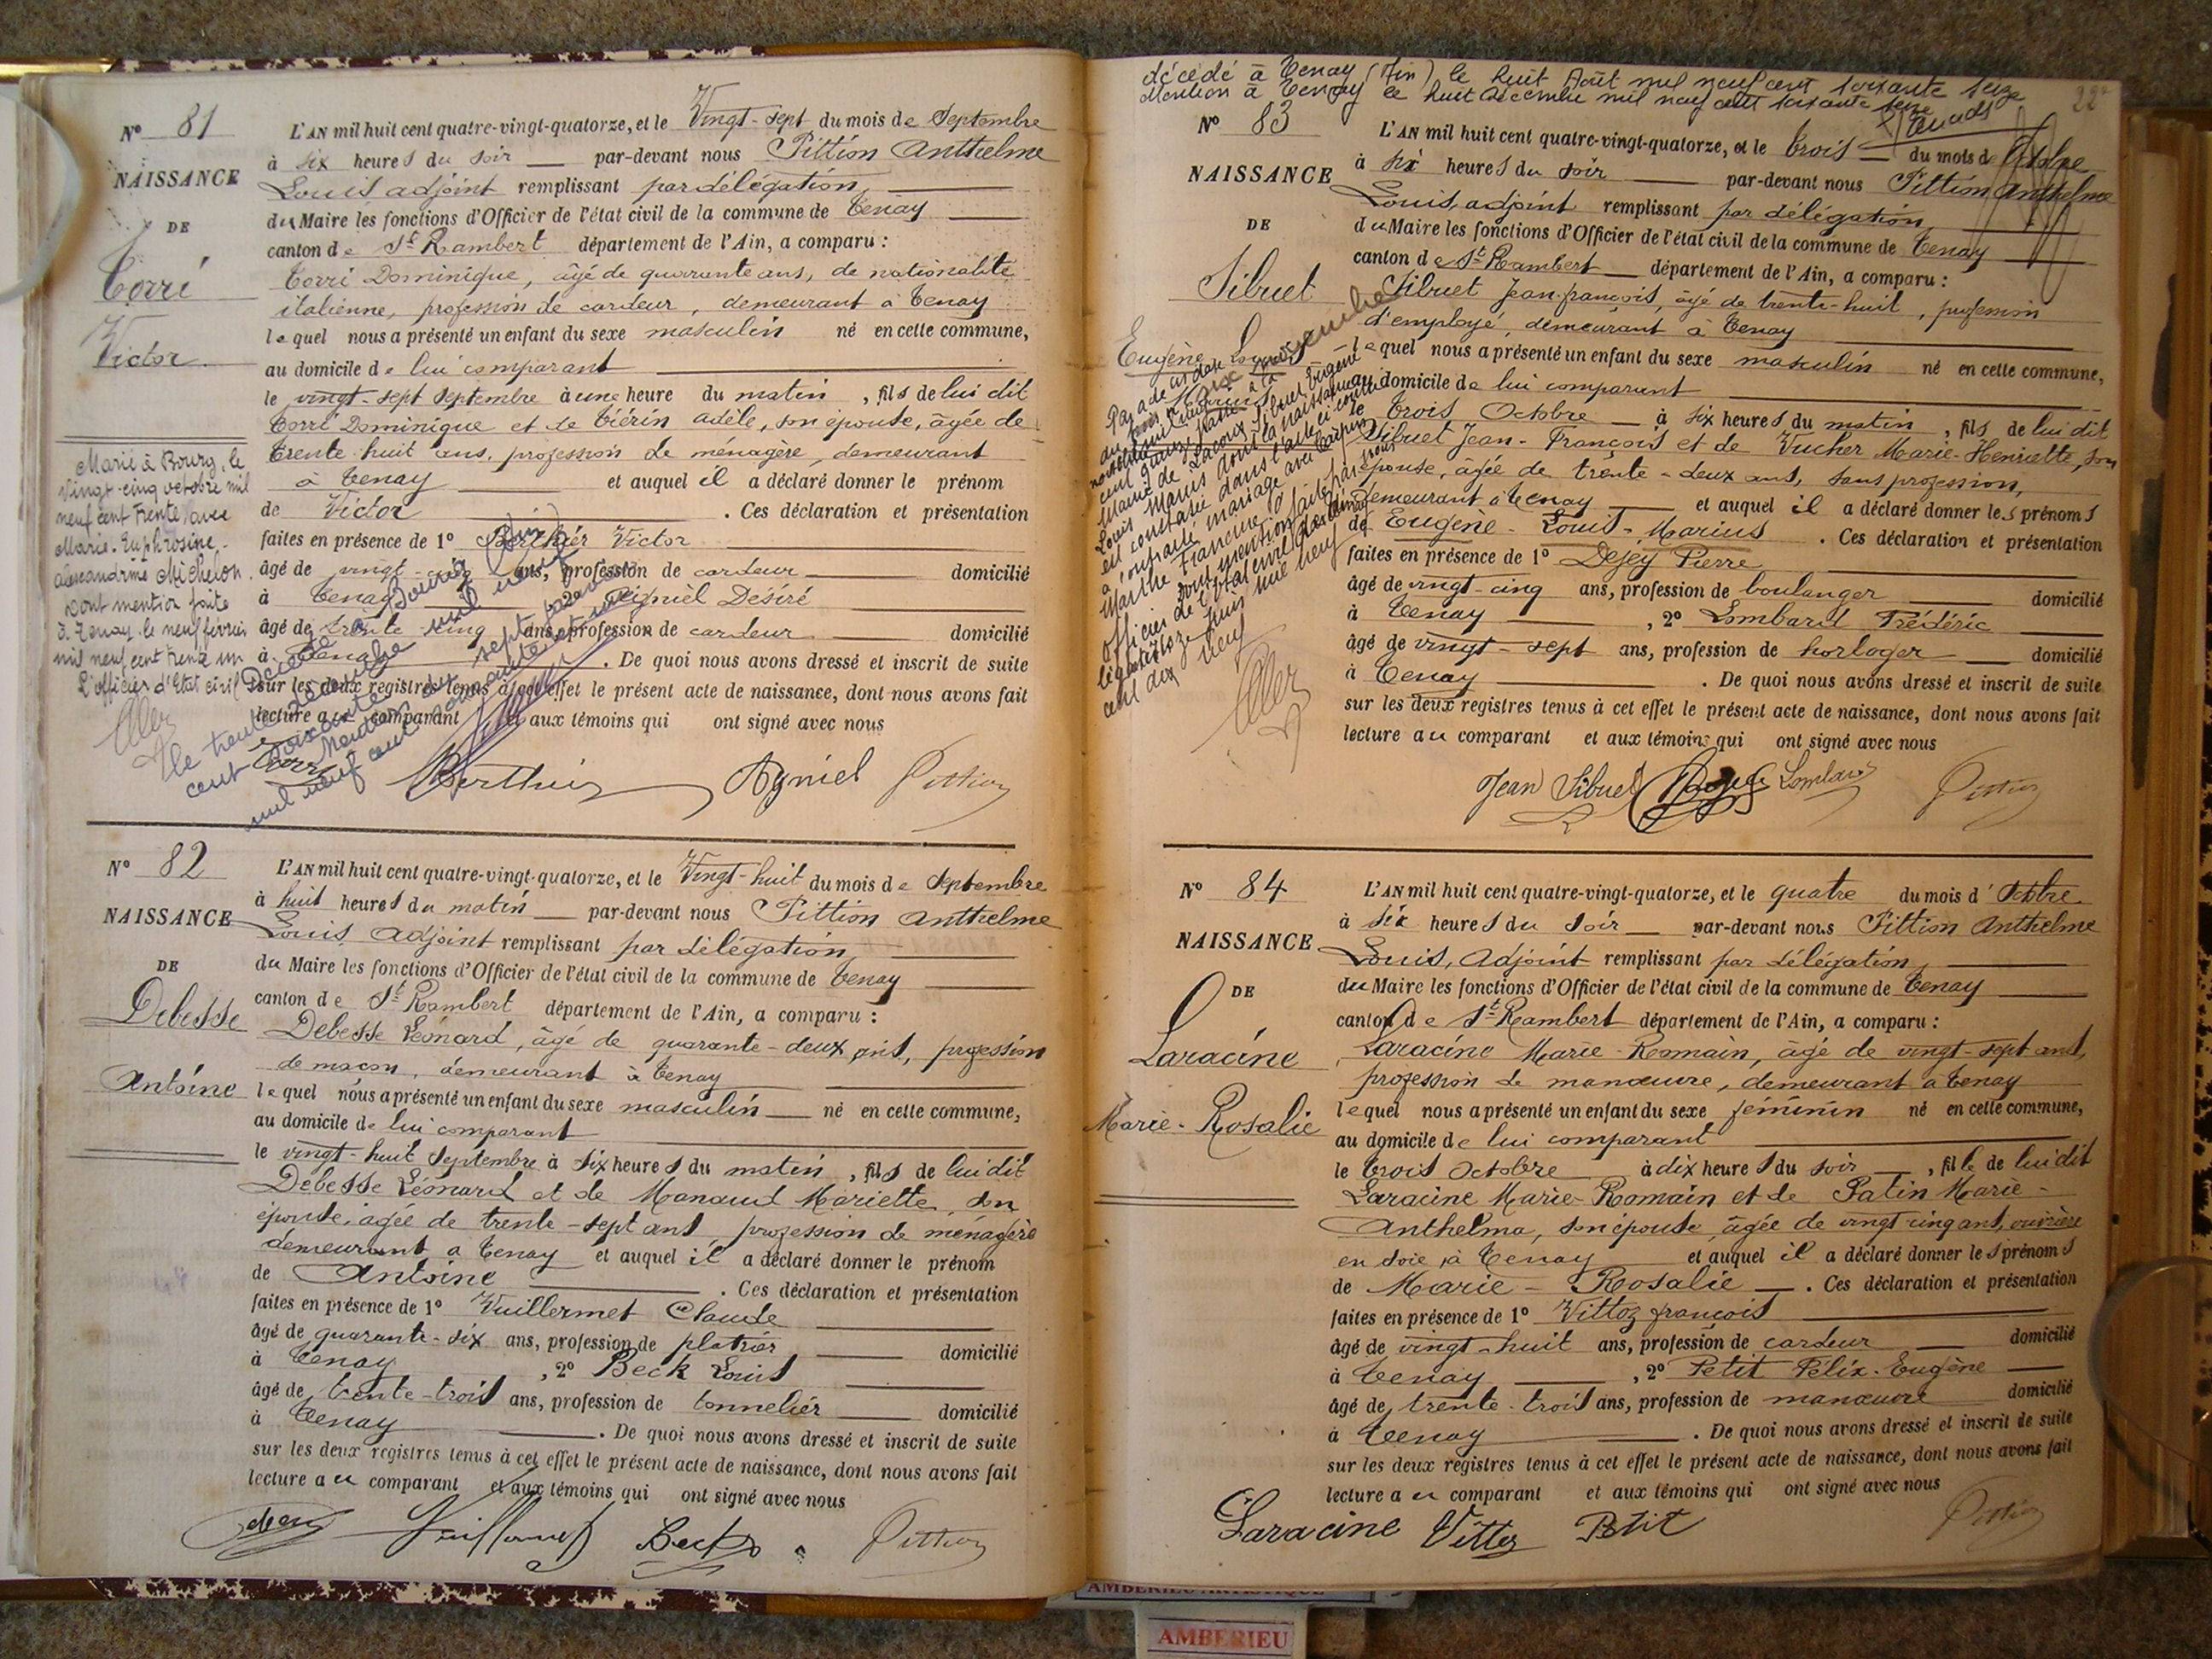 N° 81
NAISSANCE
DE
Torri
Victor
L'AN mil huit cent quatre-vingt-quatorze, et le Vingt-sept du mois de Septembre
à six heures du soir par-devant nous Pittion Anthelme
Louis adjoint remplissant par délégation,
du Maire les fonctions d'Officier de l'état civil de la commune de Tenay
canton de St Rambert département de l'Ain, a comparu :
Torri Dominique, âgé de quarante ans, de nationalité
italienne, profession de cardeur, demeurant à Tenay
lequel nous a présenté un enfant du sexe masculin né en cette commune,
au domicile de lui comparant
le vingt-sept Septembre à une heure du matin, fils de lui dit
Torri Dominique et de Tiérin Adèle, son épouse, âgée de
trente-huit ans, profession de ménagère, demeurant
à Tenay et auquel il a déclaré donner le prénom
de Victor. Ces déclaration et présentation
faites en présence de 1° Berthier Victor
âgé de vingt-cinq ans, profession de cardeur domicilié
à Tenay 2° Désiré
âgé de trente-cinq ans, profession de cardeur domicilié
à Tenay. De quoi nous avons dressé et inscrit de suite
sur les deux registres tenus à cet effet le présent acte de naissance, dont nous avons fait
lecture au comparant et aux témoins qui ont signé avec nous
Torri Berthier Ayniel Pittion
Marié à Bourg, le
vingt-cinq octobre mil
neuf cent trente, avec
Marie-Euphrosine-
Alexandrine Michelon
Dont mention faite
à Tenay le neuf février
mil neuf cent trente un
L'officier d'Etat civil
Décédé à Bourg (Ain)
le trente décembre mil neuf
cent soixante
Mention du sept janvier
mil neuf cent soixante et un
N° 82
NAISSANCE
DE
Debesse
Antoine
L'AN mil huit cent quatre-vingt-quatorze, et le Vingt-huit du mois de Septembre
à huit heures du matin par-devant nous Pittion Anthelme
Louis Adjoint remplissant par délégation,
du Maire les fonctions d'Officier de l'état civil de la commune de Tenay
canton de St Rambert département de l'Ain, a comparu :
Debesse Léonard, âgé de quarante-deux ans, profession
de maçon, demeurant à Tenay
lequel nous a présenté un enfant du sexe masculin né en cette commune,
au domicile de lui comparant
le vingt-huit Septembre à six heures du matin, fils de lui dit
Debesse Léonard et de Manaud Mariette, son
épouse, âgée de trente-sept ans, profession de ménagère
demeurant à Tenay et auquel il a déclaré donner le prénom
de Antoine. Ces déclaration et présentation
faites en présence de 1° Vuillermet Claude
âgé de quarante-six ans, profession de platrier domicilié
à Tenay, 2° Beck Louis
âgé de trente-trois ans, profession de tonnelier domicilié
à Tenay. De quoi nous avons dressé et inscrit de suite
sur les deux registres tenus à cet effet le présent acte de naissance, dont nous avons fait
lecture au comparant et aux témoins qui ont signé avec nous
Vuillermet Beck Pittion
décédé à Tenay (Ain) le huit Août mil neuf cent soixante seize
Mention à Tenay le huit décembre mil neuf cent soixante seize
N° 83
NAISSANCE
DE
Sibuet
Eugène Louis
Marius
L'AN mil huit cent quatre-vingt-quatorze, et le trois du mois d'Octobre
à six heures du soir par-devant nous Pittion Anthelme
Louis, adjoint remplissant par délégation,
du Maire les fonctions d'Officier de l'état civil de la commune de Tenay
canton de St Rambert département de l'Ain, a comparu :
Sibuet Jean-françois, âgé de trente-huit, profession
d'employé, demeurant à Tenay
lequel nous a présenté un enfant du sexe masculin né en cette commune,
au domicile de lui comparant
le trois Octobre à six heures du matin, fils de lui dit
Sibuet Jean-François et de Vucher Marie-Henriette, son
épouse, âgée de trente-deux ans, sans profession,
demeurant à Tenay et auquel il a déclaré donner les prénoms
de Eugène-Louis-Marius. Ces déclaration et présentation
faites en présence de 1° Dejey Pierre
âgé de vingt-cinq ans, profession de boulanger domicilié
à Tenay, 2° Lombard Frédéric
âgé de vingt-sept ans, profession de horloger domicilié
à Tenay. De quoi nous avons dressé et inscrit de suite
sur les deux registres tenus à cet effet le présent acte de naissance, dont nous avons fait
lecture au comparant et aux témoins qui ont signé avec nous
Jean Sibuet Lombard Pittion
N° 84
NAISSANCE
DE
Laracine
Marie-Rosalie
L'AN mil huit cent quatre-vingt-quatorze, et le quatre du mois d'Octobre
à six heures du soir par-devant nous Pittion Anthelme
Louis, Adjoint remplissant par délégation,
du Maire les fonctions d'Officier de l'état civil de la commune de Tenay
canton de St Rambert département de l'Ain, a comparu :
Laracine Marie-Romain, âgé de vingt-sept ans,
profession de manœuvre, demeurant à Tenay
lequel nous a présenté un enfant du sexe féminin né en cette commune,
au domicile de lui comparant
le trois Octobre à dix heures du soir, fille de lui dit
Laracine Marie-Romain et de Patin Marie-
Anthelma, son épouse, âgée de vingt-cinq ans, ouvrière
en soie, à Tenay et auquel il a déclaré donner les prénoms
de Marie-Rosalie. Ces déclaration et présentation
faites en présence de 1° Vittoz françois
âgé de vingt-huit ans, profession de cardeur domicilié
à Tenay, 2° Petit Félix-Eugène
âgé de trente-trois ans, profession de manœuvre domicilié
à Tenay. De quoi nous avons dressé et inscrit de suite
sur les deux registres tenus à cet effet le présent acte de naissance, dont nous avons fait
lecture au comparant et aux témoins qui ont signé avec nous
Laracine Vittoz Petit Pittion
AMBERIEU ARTISTIQUE
AMBERIEU